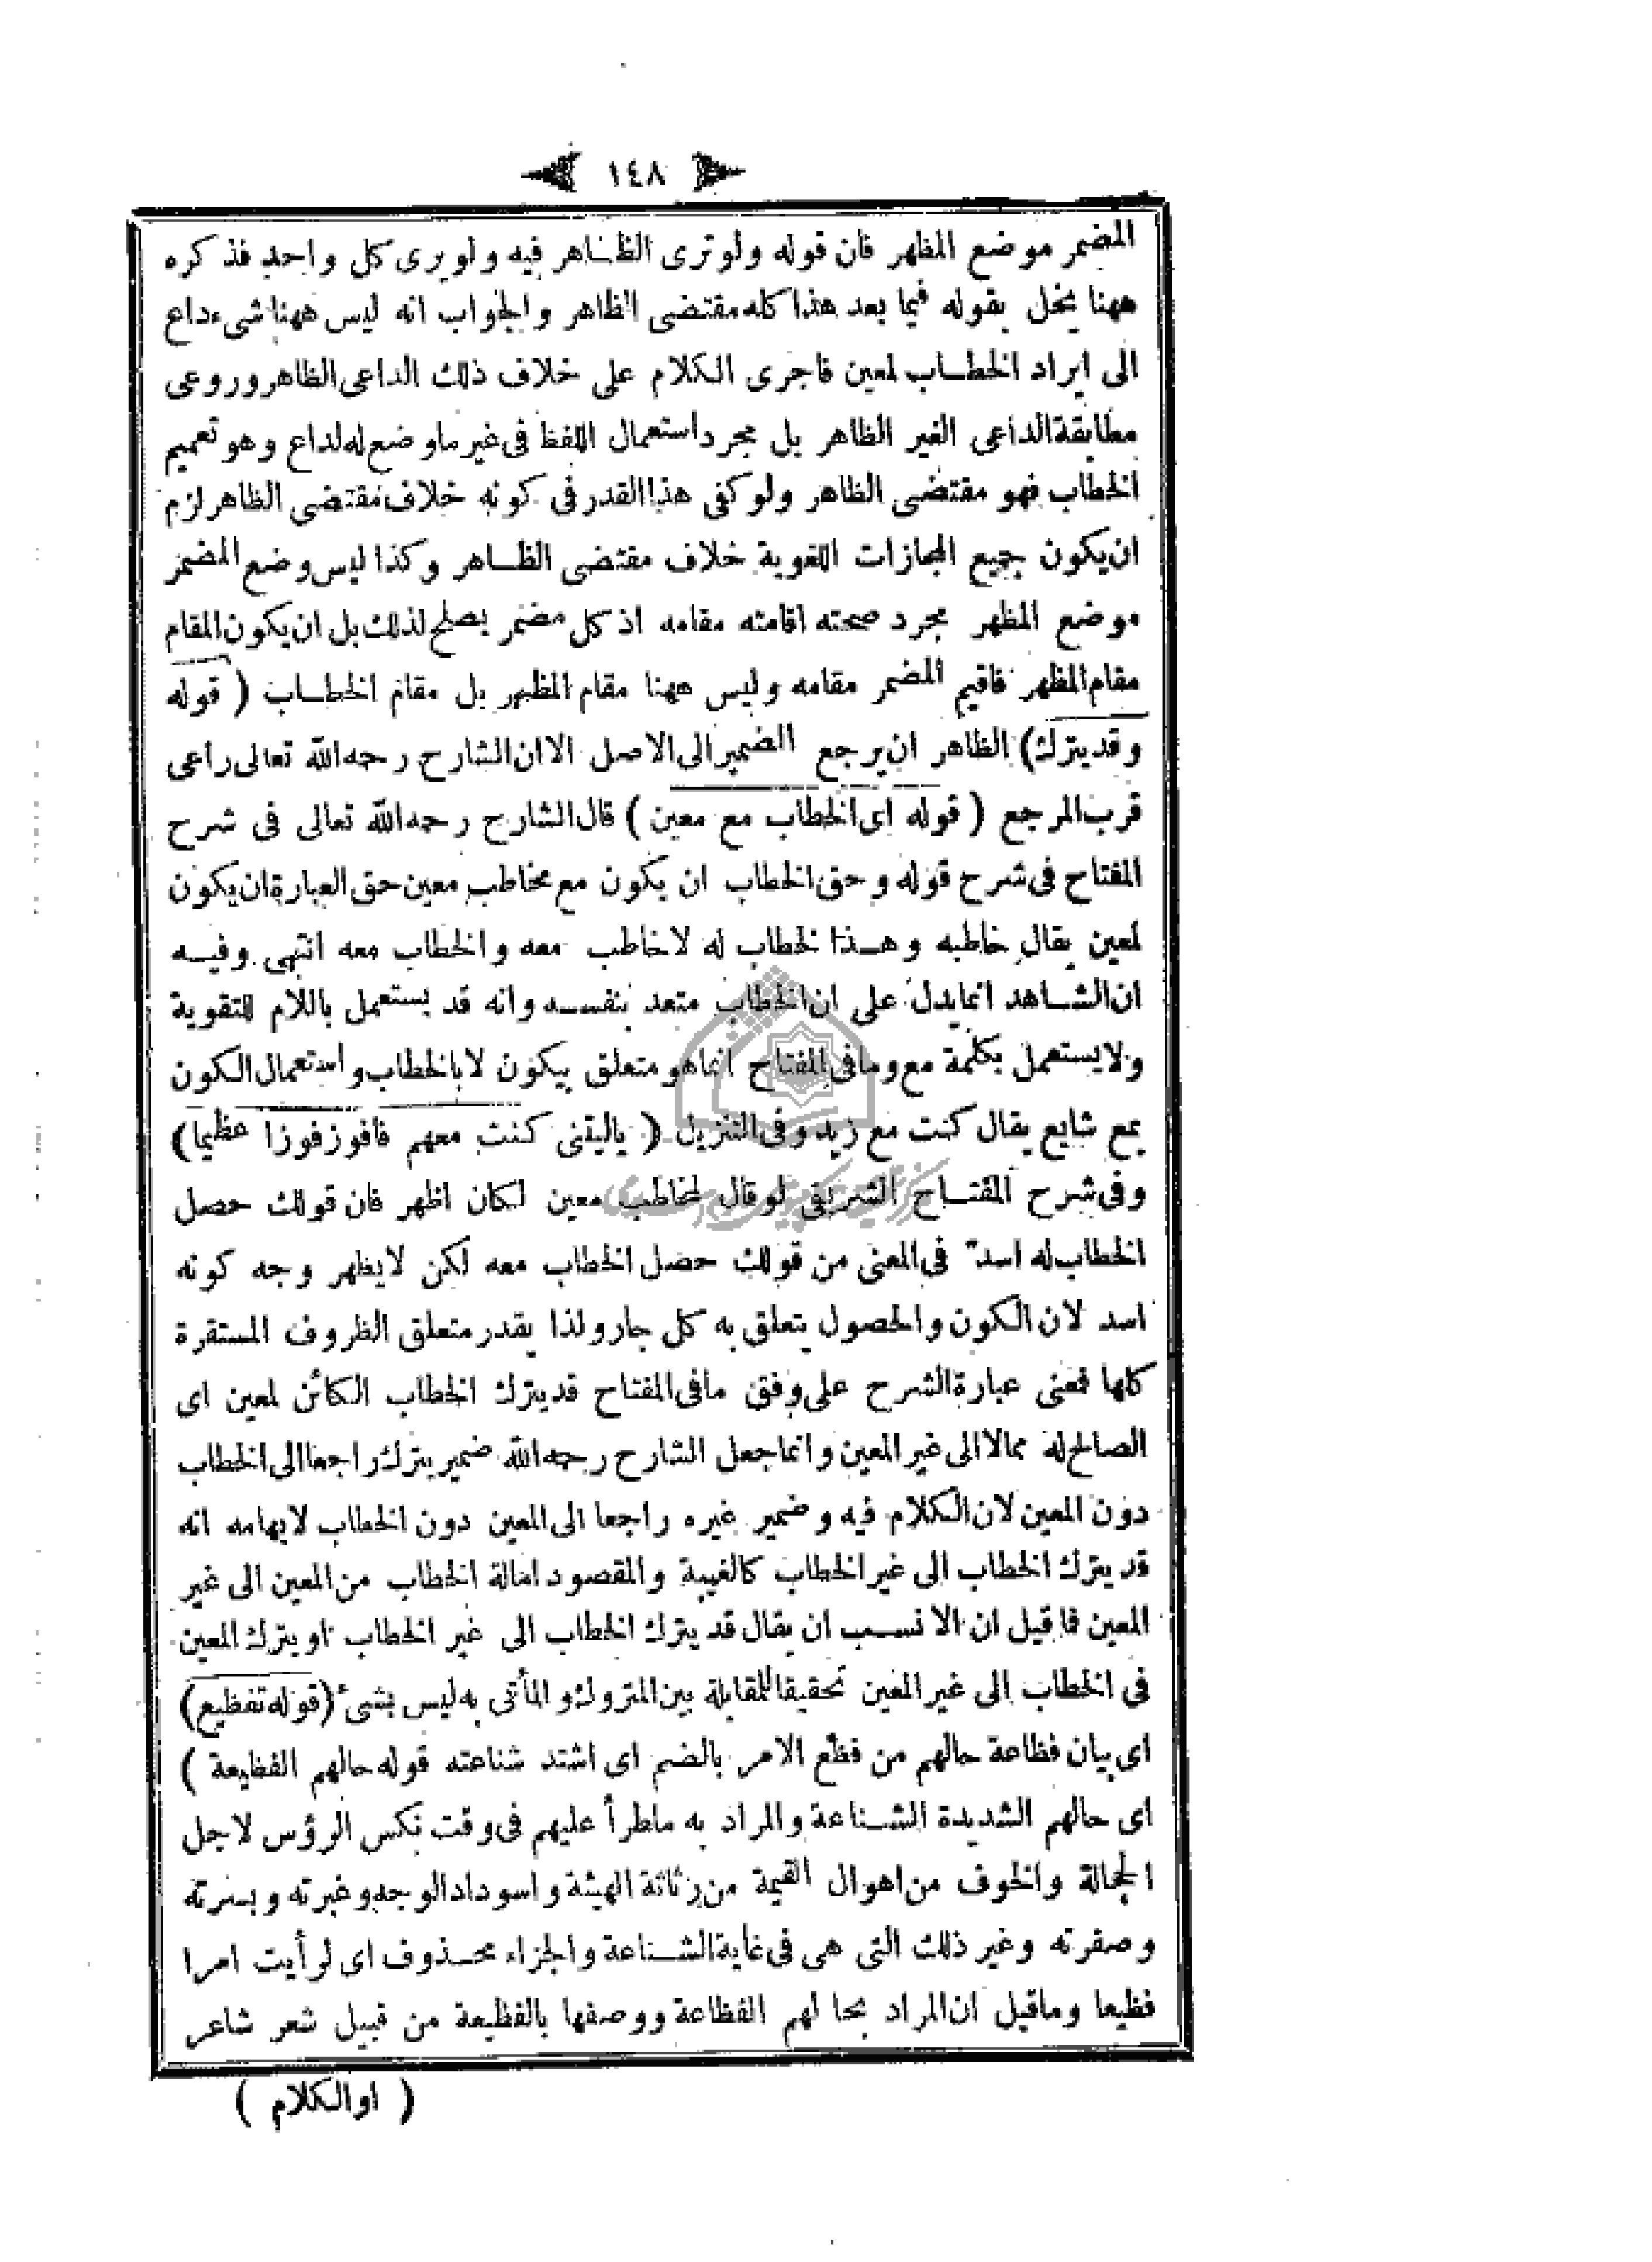 ١٤٨
المضمر موضع المظهر فان قوله ولو ترى الظاهر فيه ولو يرى كل واحد فذكره
ههنا يخل بقوله فيما بعد هذا كله مقتضى الظاهر والجواب انه ليس ههنا شىء داع
الى ايراد الخطاب لمعين فاجرى الكلام على خلاف ذلك الداعى الظاهر وروعى
مطابقة الداعى الغير الظاهر بل مجرد استعمال اللفظ فى غير ما وضع له لداع وهو تعميم
الخطاب فهو مقتضى الظاهر ولو كفى هذا القدر فى كونه خلاف مقتضى الظاهر لزم
ان يكون جميع المجازات اللغوية خلاف مقتضى الظاهر وكذا ليس وضع المضمر
موضع المظهر مجرد صحته اقامته مقامه اذ كل مضمر يصلح لذلك بل ان يكون المقام
مقام المظهر فاقيم المضمر مقامه وليس ههنا مقام المظهر بل مقام الخطاب ( قوله
وقد يترك) الظاهر ان يرجع الضمير الى الاصل الا ان الشارح رحمه الله تعالى راعى
قرب المرجع ( قوله اى الخطاب مع معين ) قال الشارح رحمه الله تعالى فى شرح
المفتاح فى شرح قوله وحق الخطاب ان يكون مع مخاطب معين حق العبارة ان يكون
لمعين يقال خاطبه وهذا خطاب له لا خاطب معه والخطاب معه انتهى وفيه
ان الشاهد انما يدل على ان الخطاب متعد بنفسه وانه قد يستعمل باللام للتقوية
ولا يستعمل بكلمة مع وما فى المفتاح انما هو متعلق بيكون لا بالخطاب واستعمال الكون
بمع شايع يقال كنت مع زيد وفى التنزيل ( ياليتنى كنت معهم فافوز فوزا عظيما)
وفى شرح المفتاح الشريفى لو قال لمخاطب معين لكان اظهر فان قولك حصل
الخطاب له اسد فى المعنى من قولك حصل الخطاب معه لكن لا يظهر وجه كونه
اسد لان الكون والحصول يتعلق به كل جار ولذا يقدر متعلق الظروف المستقرة
كلها فمعنى عبارة الشرح على وفق ما فى المفتاح قد يترك الخطاب الكائن لمعين اى
الصالح له ممالا الى غير المعين وانما جعل الشارح رحمه الله ضمير يترك راجعا الى الخطاب
دون المعين لان الكلام فيه وضمير غيره راجعا الى المعين دون الخطاب لايهامه انه
قد يترك الخطاب الى غير الخطاب كالغيبة والمقصود امالة الخطاب من المعين الى غير
المعين فما قيل ان الانسب ان يقال قد يترك الخطاب الى غير الخطاب او يترك المعين
فى الخطاب الى غير المعين تحقيقا للمقابلة بين المتروك والمأتى به ليس بشئ (قوله تفظيع)
اى بيان فظاعة حالهم من فظع الامر بالضم اى اشتد شناعته قوله حالهم الفظيعة )
اى حالهم الشديدة الشناعة والمراد به ماطرأ عليهم فى وقت نكس الرؤس لاجل
الخجالة والخوف من اهوال القيمة من رثاثة الهيئة واسوداد الوجه وغبرته وبسرته
وصفرته وغير ذلك التى هى فى غاية الشناعة والجزاء محذوف اى لرأيت امرا
فظيعا وماقيل ان المراد بحالهم الفظاعة ووصفها بالفظيعة من قبيل شعر شاعر
( اوالكلام )